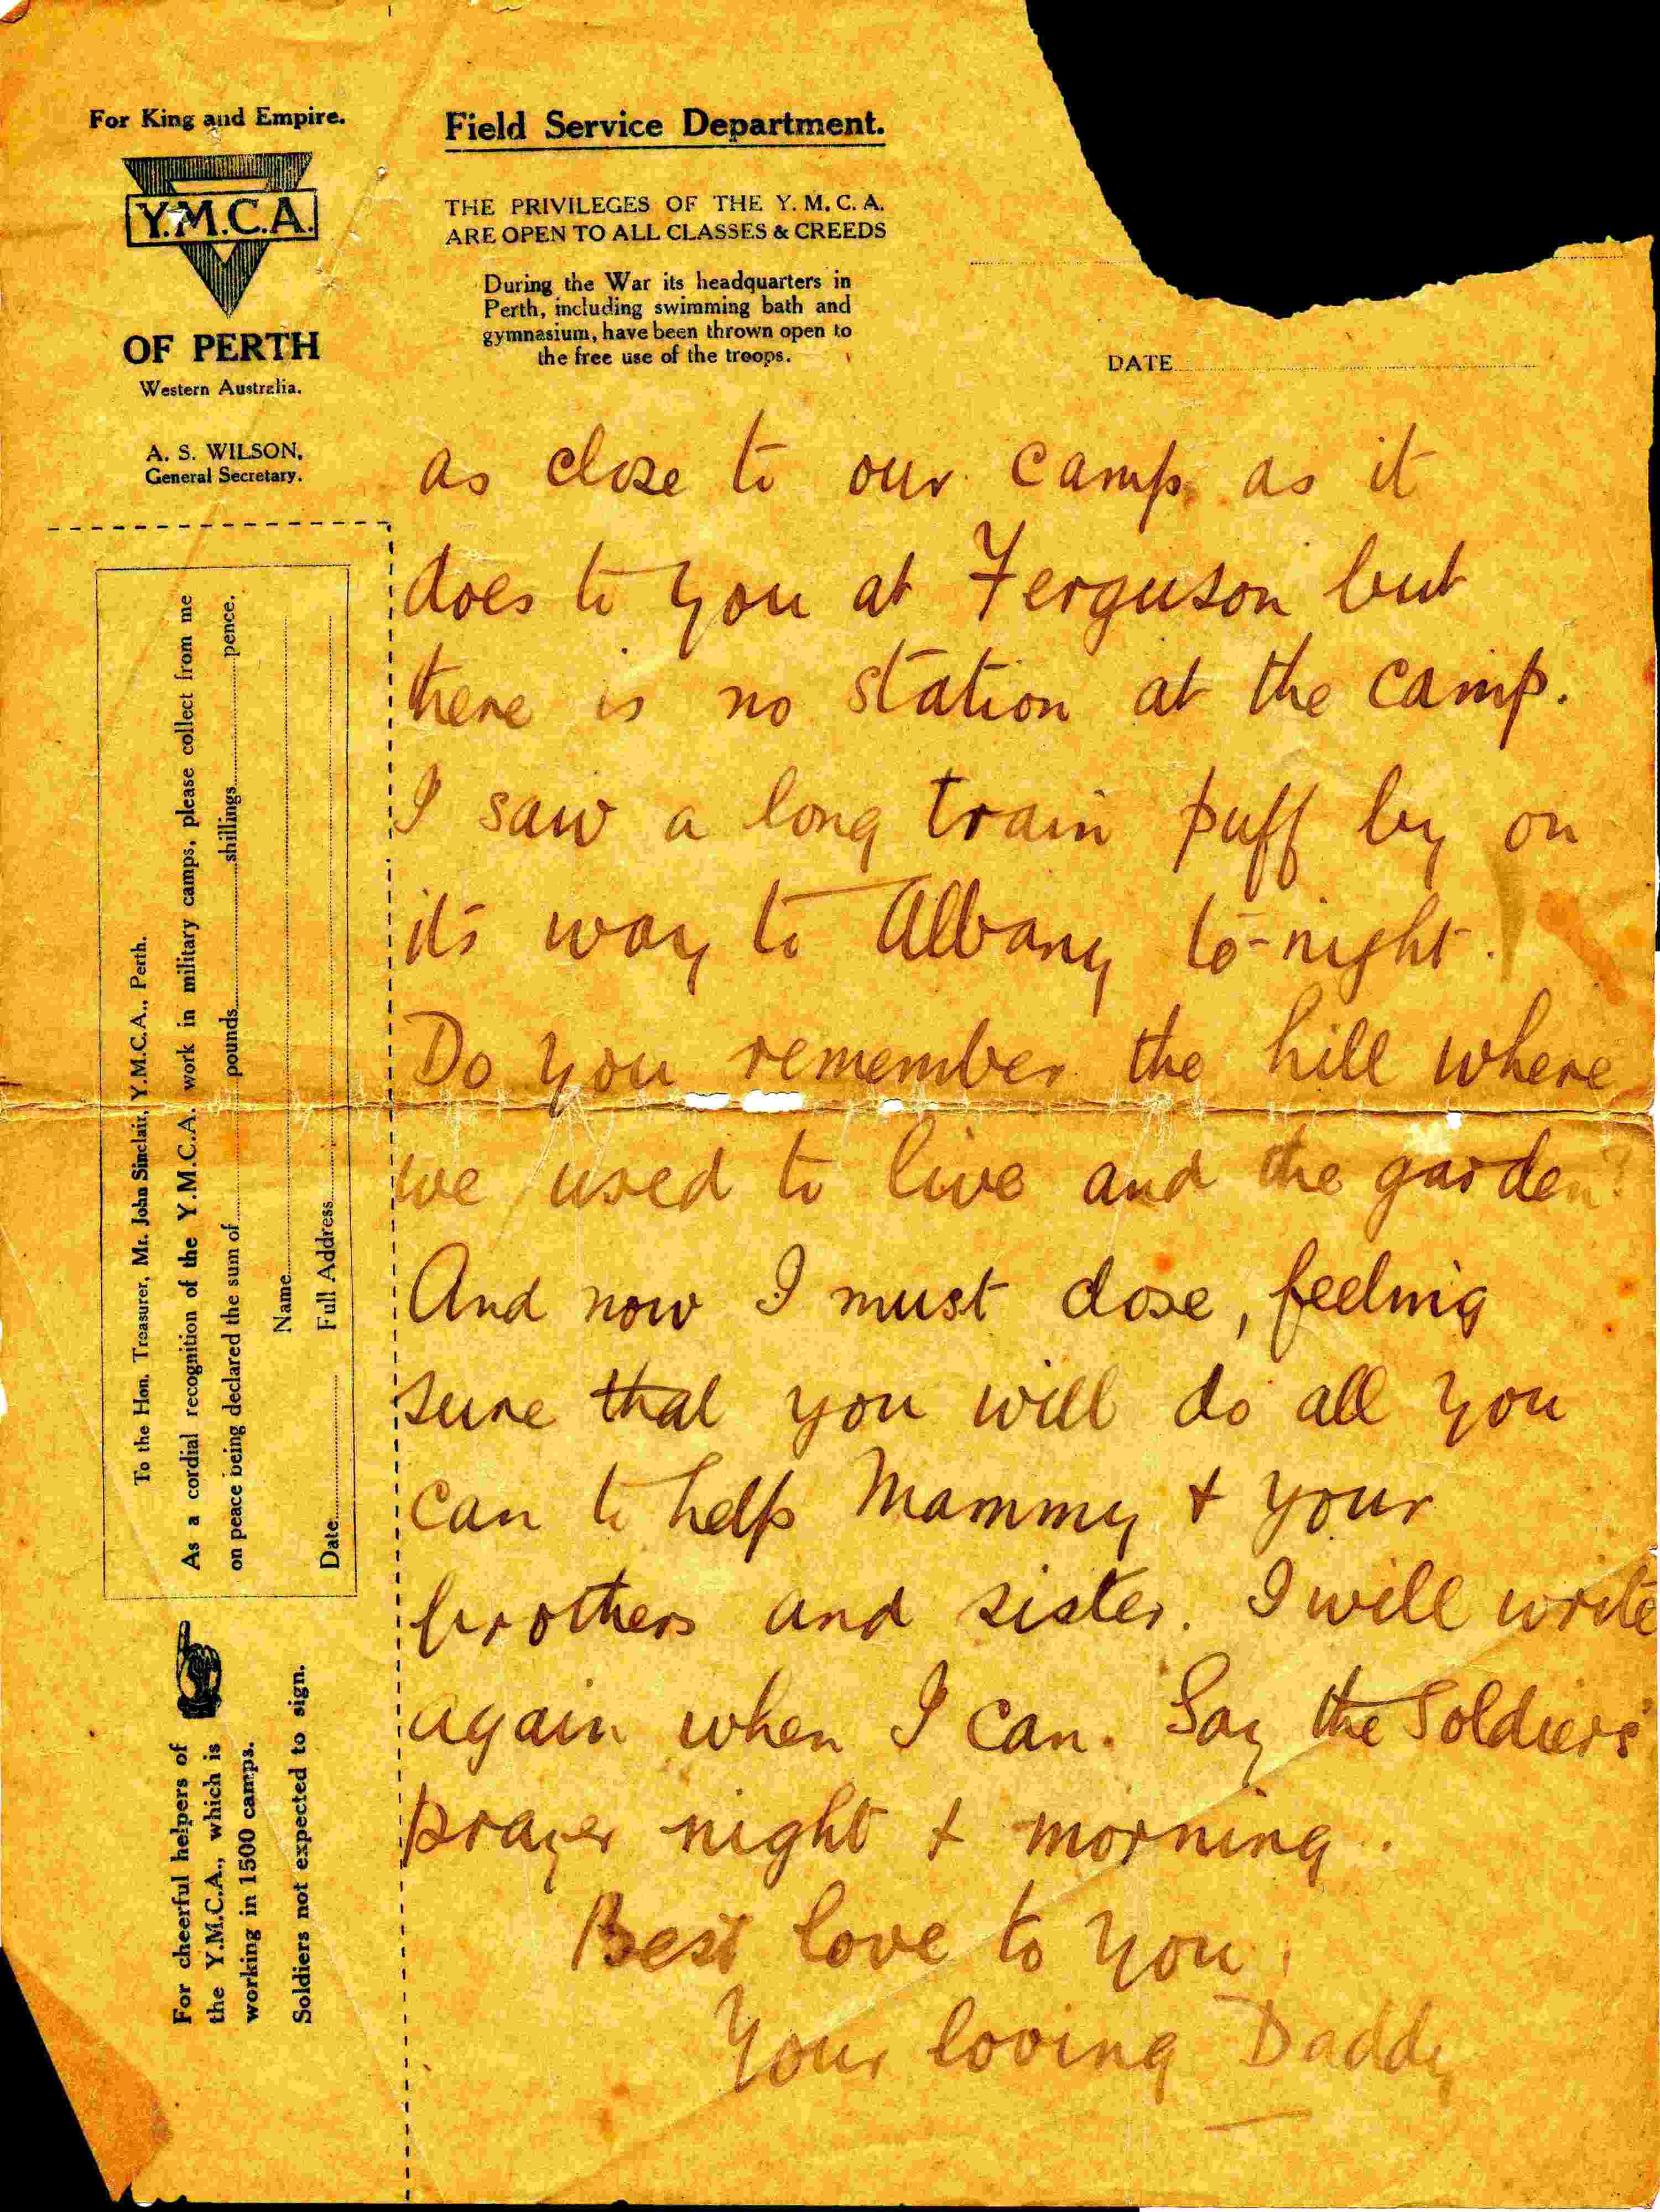 For King and Empire.
Y.M.C.A.
OF PERTH
Western Australia.
A. S. WILSON,
General Secretary.
Field Service Department.
THE PRIVILEGES OF THE Y. M. C. A.
ARE OPEN TO ALL CLASSES & CREEDS
During the War its headquarters in
Perth, including swimming bath and
gymnasium, have been thrown open to
the free use of the troops.
DATE
as close to our camp as it
does to you at Ferguson but
there is no station at the camp.
I saw a long train puff by on
it's way to Albany to-night.
Do you remember the hill where
we used to live and the garden?
And now I must close, feeling
sure that you will do all you
can to help Mammy & your
brothers and sister. I will write
again when I can. Say the Soldiers'
prayer night & morning.
Best love to you,
Your loving Daddy
To the Hon. Treasurer, Mr. John Sinclair, Y.M.C.A., Perth.
As a cordial recognition of the Y.M.C.A. work in military camps, please collect from me
on peace being declared the sum of pounds shillings pence.
Name
Date Full Address
For cheerful helpers of
the Y.M.C.A., which is
working in 1500 camps.
Soldiers not expected to sign.